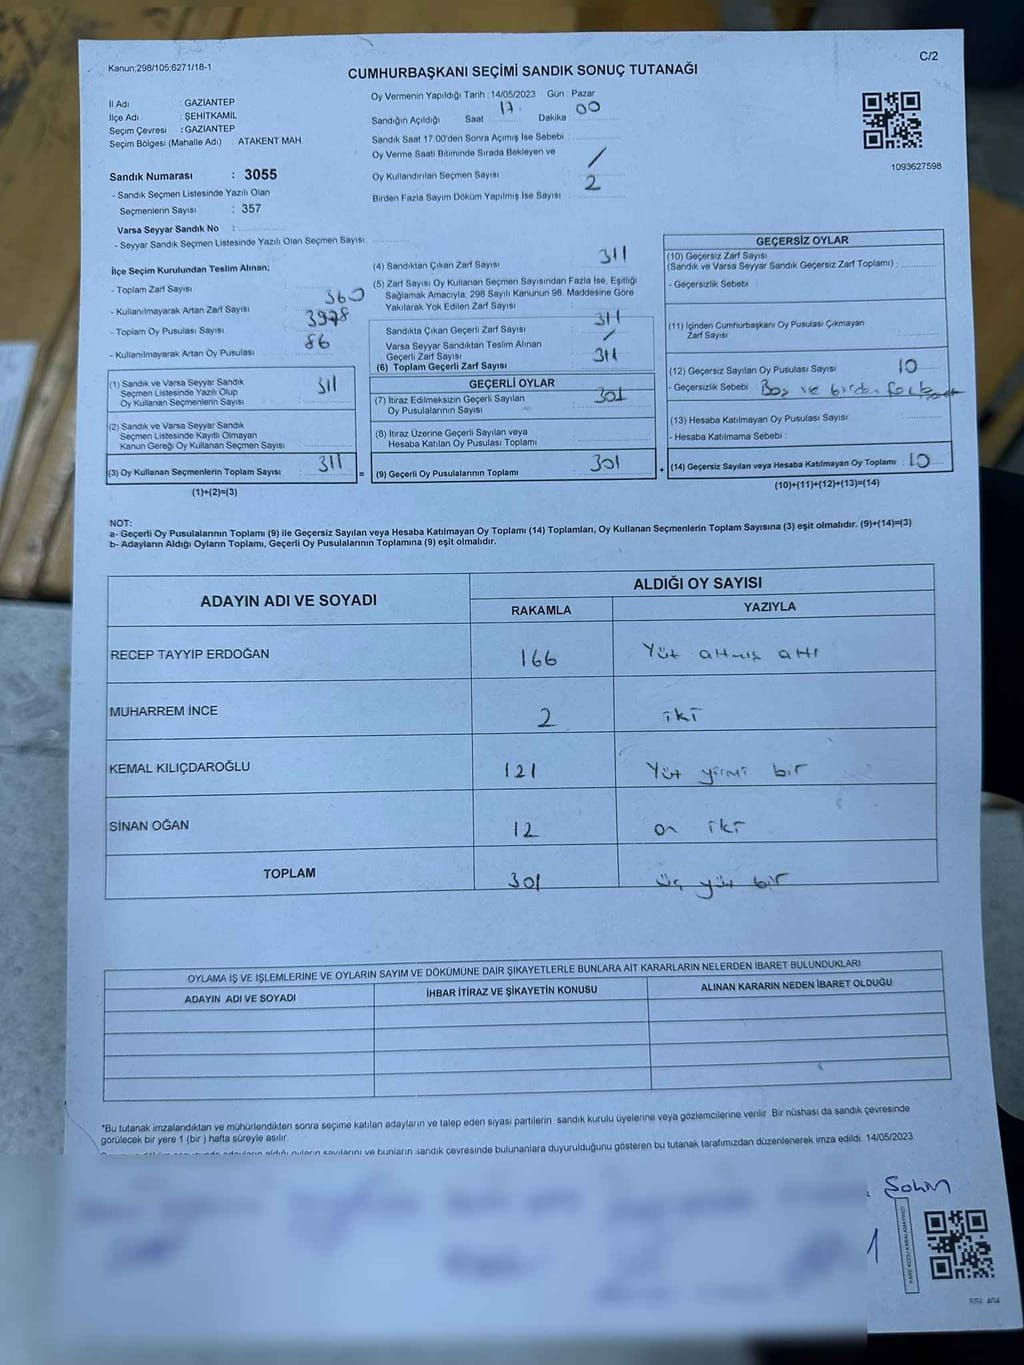 Kanun:298/105;6271/18-1
C/2
CUMHURBAŞKANI SEÇİMİ SANDIK SONUÇ TUTANAĞI
İl Adı : GAZİANTEP
İlçe Adı : ŞEHİTKAMİL
Seçim Çevresi : GAZİANTEP
Seçim Bölgesi (Mahalle Adı) : ATAKENT MAH
Sandık Numarası : 3055
- Sandık Seçmen Listesinde Yazılı Olan
Seçmenlerin Sayısı : 357
Varsa Seyyar Sandık No :
- Seyyar Sandık Seçmen Listesinde Yazılı Olan Seçmen Sayısı
Oy Vermenin Yapıldığı Tarih : 14/05/2023 Gün : Pazar
Sandığın Açıldığı Saat 17. Dakika 00
Sandık Saat 17:00'den Sonra Açımış İse Sebebi
Oy Verme Saati Bitiminde Sırada Bekleyen ve
Oy Kullandırılan Seçmen Sayısı /
Birden Fazla Sayım Döküm Yapılmış İse Sayısı 2
1093627598
İlçe Seçim Kurulundan Teslim Alınan;
- Toplam Zarf Sayısı 360
- Kullanılmayarak Artan Zarf Sayısı
- Toplam Oy Pusulası Sayısı
- Kullanılmayarak Artan Oy Pusulası 86
(1) Sandık ve Varsa Seyyar Sandık
Seçmen Listesinde Yazılı Olup
Oy Kullanan Seçmenlerin Sayısı 311
(2) Sandık ve Varsa Seyyar Sandık
Seçmen Listesinde Kayıtlı Olmayan
Kanun Gereği Oy Kullanan Seçmen Sayısı
(3) Oy Kullanan Seçmenlerin Toplam Sayısı 311
(1)+(2)=(3)
(4) Sandıktan Çıkan Zarf Sayısı 311
(5) Zarf Sayısı Oy Kullanan Seçmen Sayısından Fazla İse, Eşitliği
Sağlamak Amacıyla, 298 Sayılı Kanunun 98. Maddesine Göre
Yakılarak Yok Edilen Zarf Sayısı
Sandıkta Çıkan Geçerli Zarf Sayısı 311
Varsa Seyyar Sandıktan Teslim Alınan
Geçerli Zarf Sayısı /
(6) Toplam Geçerli Zarf Sayısı 311
GEÇERLİ OYLAR
(7) İtiraz Edilmeksizin Geçerli Sayılan
Oy Pusulalarının Sayısı 301
(8) İtiraz Üzerine Geçerli Sayılan veya
Hesaba Katılan Oy Pusulası Toplamı
= (9) Geçerli Oy Pusulalarının Toplamı 301
GEÇERSİZ OYLAR
(10) Geçersiz Zarf Sayısı
(Sandık ve Varsa Seyyar Sandık Geçersiz Zarf Toplamı) :
- Geçersizlik Sebebi :
(11) İçinden Cumhurbaşkanı Oy Pusulası Çıkmayan
Zarf Sayısı
(12) Geçersiz Sayılan Oy Pusulası Sayısı 10
- Geçersizlik Sebebi : Boş ve birden fazla
(13) Hesaba Katılmayan Oy Pusulası Sayısı
- Hesaba Katılmama Sebebi :
+ (14) Geçersiz Sayılan veya Hesaba Katılmayan Oy Toplamı : 10
(10)+(11)+(12)+(13)=(14)
NOT:
a- Geçerli Oy Pusulalarının Toplamı (9) ile Geçersiz Sayılan veya Hesaba Katılmayan Oy Toplamı (14) Toplamları, Oy Kullanan Seçmenlerin Toplam Sayısına (3) eşit olmalıdır. (9)+(14)=(3)
b- Adayların Aldığı Oyların Toplamı, Geçerli Oy Pusulalarının Toplamına (9) eşit olmalıdır.
ADAYIN ADI VE SOYADI
ALDIĞI OY SAYISI
RAKAMLA YAZIYLA
RECEP TAYYIP ERDOĞAN 166 Yüz altmış altı
MUHARREM İNCE 2 iki
KEMAL KILIÇDAROĞLU 121 Yüz yirmi bir
SİNAN OĞAN 12 on iki
TOPLAM 301 üç yüz bir
OYLAMA İŞ VE İŞLEMLERİNE VE OYLARIN SAYIM VE DÖKÜMÜNE DAİR ŞİKAYETLERLE BUNLARA AİT KARARLARIN NELERDEN İBARET BULUNDUKLARI
ADAYIN ADI VE SOYADI İHBAR İTİRAZ VE ŞİKAYETİN KONUSU ALINAN KARARIN NEDEN İBARET OLDUĞU
*Bu tutanak imzalandıktan ve mühürlendikten sonra seçime katılan adayların ve talep eden siyasi partilerin sandık kurulu üyelerine veya gözlemcilerine verilir. Bir nüshası da sandık çevresinde
görülecek bir yere 1 (bir ) hafta süreyle asılır.
adayların aldığı oyların sayılarını ve bunların sandık çevresinde bulunanlara duyurulduğunu gösteren bu tutanak tarafımızdan düzenlenerek imza edildi. 14/05/2023
Şahin
KARE KODU KARALAMAYINIZ!